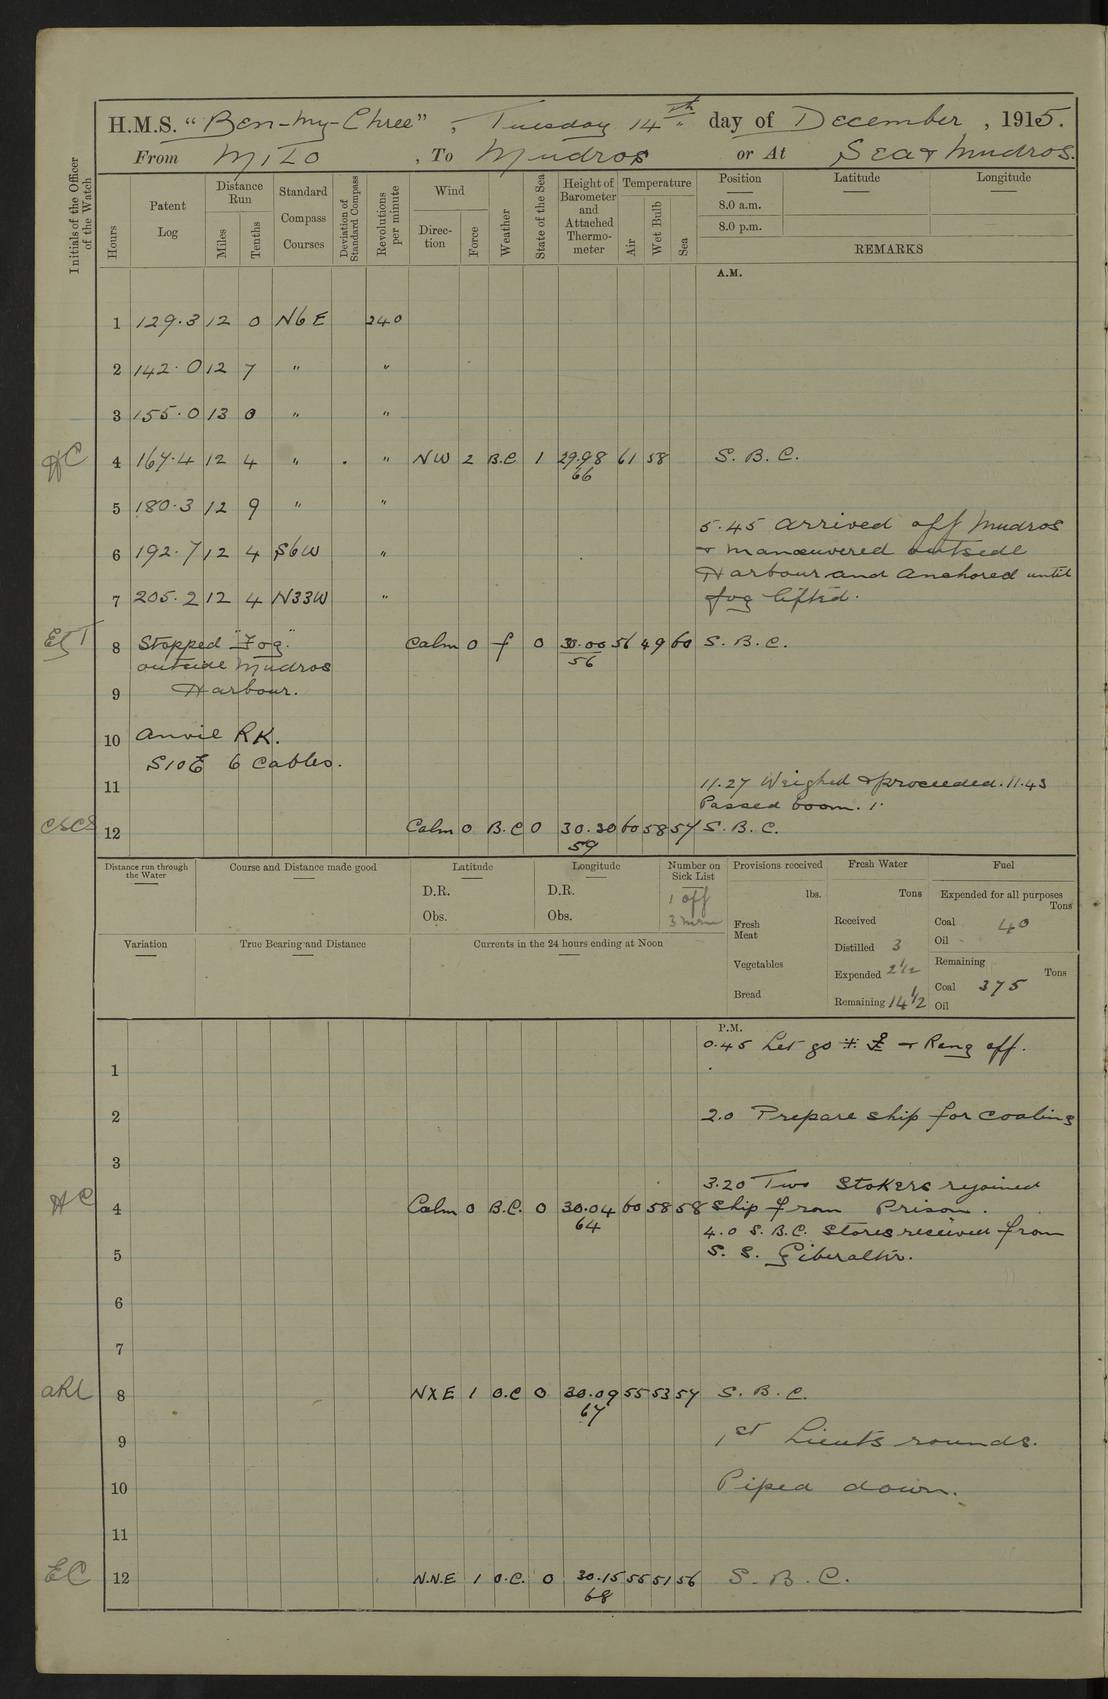 H.M.S. "Ben-my-Chree", Tuesday 14th day of December, 1915.
From Milo, To Mudros or At Sea & Mudros.
Initials of the Officer of the Watch
Hours
Patent Log
Distance Run
Miles
Tenths
Standard Compass Courses
Deviation of Standard Compass
Revolutions per minute
Wind
Direction
Force
Weather
State of the Sea
Height of Barometer and Attached Thermometer
Temperature
Air
Wet Bulb
Sea
Position
8.0 a.m.
8.0 p.m.
Latitude
Longitude
REMARKS
A.M.
1 129.3 12 0 N6E 240
2 142.0 12 7 " "
3 155.0 13 0 " "
HC 4 167.4 12 4 " " NW 2 B.C 1 29.98 61 58 S.B.C.
66
5 180.3 12 9 " "
5.45 arrived off Mudros
6 192.7 12 4 S6W " & manœuvered outside
Harbour and anchored until
7 205.2 12 4 N33W " fog lifted.
EGT 8 Stopped "Fog" Calm 0 f 0 30.00 56 49 60 S.B.C.
56
outside Mudros
9 Harbour.
10 Anvil RK.
S10E 6 Cables.
11 11.27 Weighed & proceeded. 11.43
Passed boom.
12 Calm 0 B.C 0 30.20 60 58 57 S.B.C.
59
Distance run through the Water
Course and Distance made good
Latitude
D.R.
Obs.
Longitude
D.R.
Obs.
Number on Sick List
1 off
3 men
Provisions received
lbs.
Fresh Meat
Vegetables
Bread
Fresh Water
Tons
Received
Distilled 3
Expended 2 1/2
Remaining 14 1/2
Fuel
Expended for all purposes
Tons
Coal 40
Oil
Remaining
Tons
Coal 375
Oil
Variation
True Bearing and Distance
Currents in the 24 hours ending at Noon
P.M.
0.45 Let go & Rang off.
1
2 2.0 Prepare ship for coaling
3
3.20 Two Stokers rejoined
HC 4 Calm 0 B.C. 0 30.04 60 58 58 ship from Prison.
64
4.0 S.B.C. Stores received from
5 S.S. Giberalter.
6
7
aRL 8 NXE 1 O.C 0 30.09 55 53 57 S.B.C.
67
9 1st Lieuts rounds.
10 Piped down.
11
EC 12 N.N.E 1 O.C. 0 30.15 55 51 56 S.B.C.
68